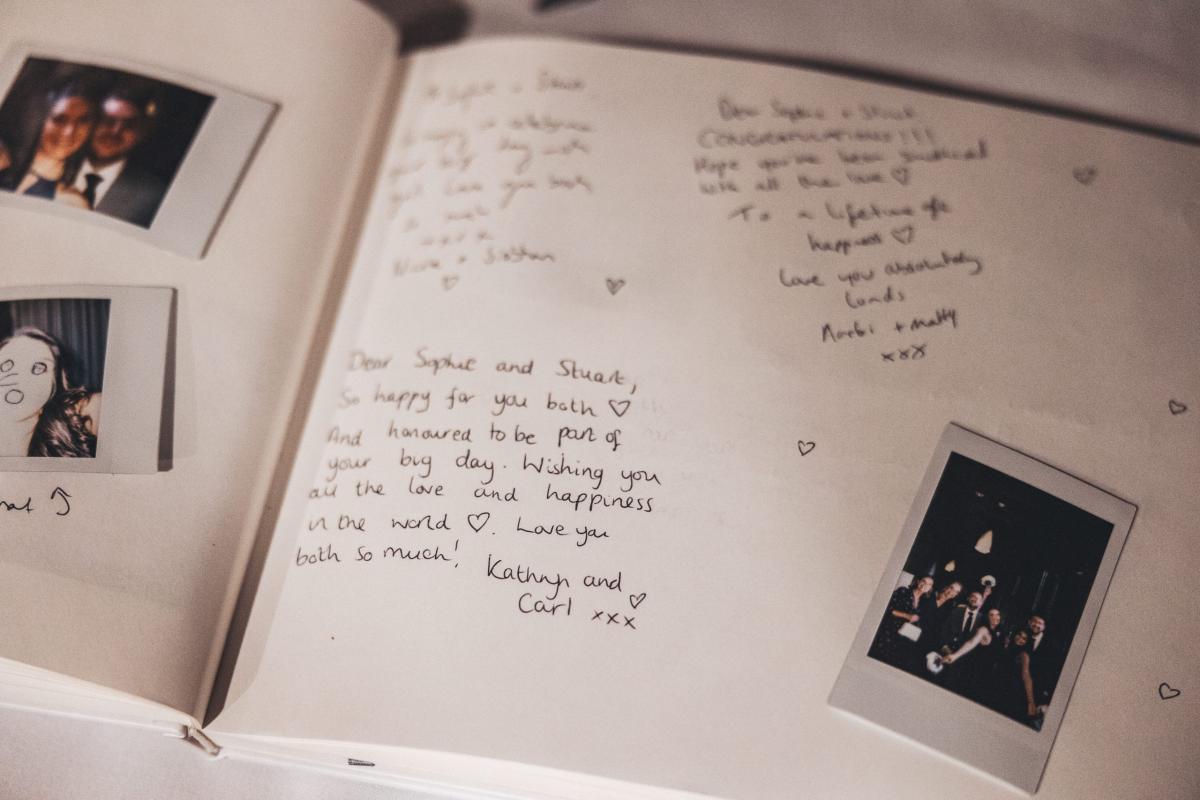 Dear Sophie and Stuart,
So happy for you both ♡
And honoured to be part of
your big day. Wishing you
all the love and happiness
in the world ♡. Love you
both so much!
Kathryn and
Carl xxx ♡
Dear Sophie + Stuart
CONGRATULATIONS!!!
Hope you've been
with all the love ♡
To a lifetime of
happiness ♡
Love you absolutely
loads
+ Matty
xxx
Sophie + Stuart
your big day with
you both
so much
xxxx
+ Siobhan